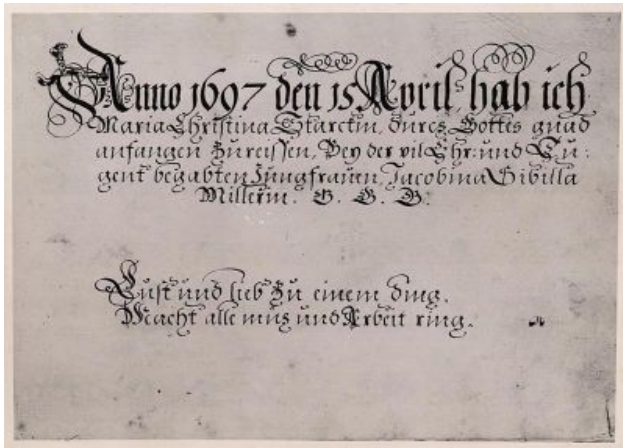 Anno 1697 den 15 April hab ich
Maria Christina Starckin, durch Gottes gnad
anfangen Zureissen, Bey der vil Ehr: und Tu:
gent begabten Jungfrauen, Jacobina Sibilla
Millerin. G. G. G.
Lust und lieb Zu einem ding.
Macht alle müe und Arbeit ring.